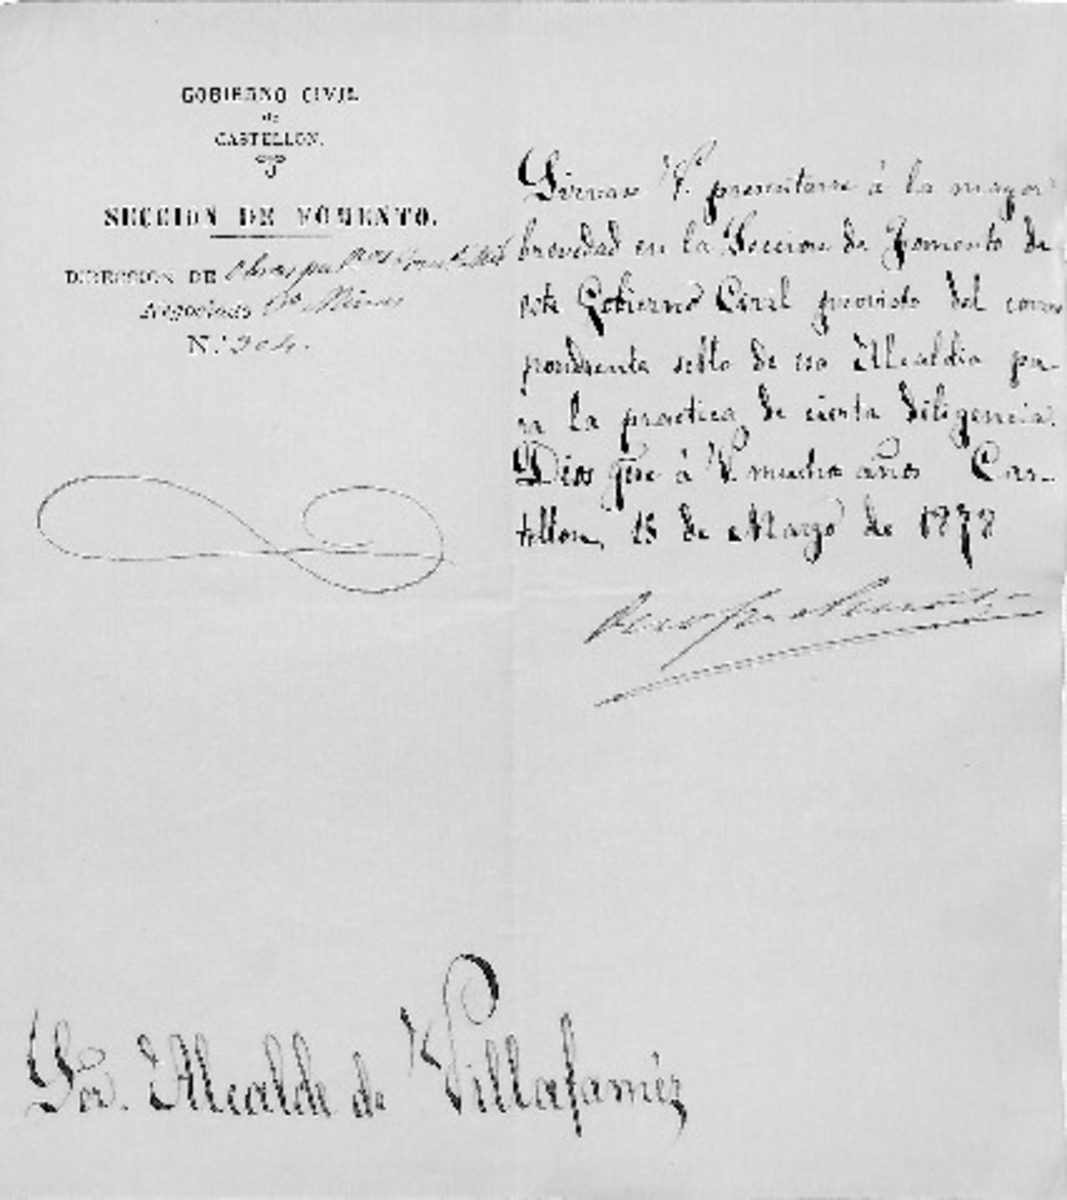 GOBIERNO CIVIL
de
CASTELLON.
SECCION DE FOMENTO.
DIRECCION DE Obras pu
Negociado Minas
N.º 204.
Sirvase V. presentarse á la mayor
brevedad en la Seccion de Fomento de
este Gobierno Civil provisto del corres
pondiente sello de esa Alcaldia pa-
ra la practica de cierta diligencia.
Dios gue á V. muchos años Cas-
tellon, 15 de Marzo de 1878
Sor. Alcalde de Villafamés